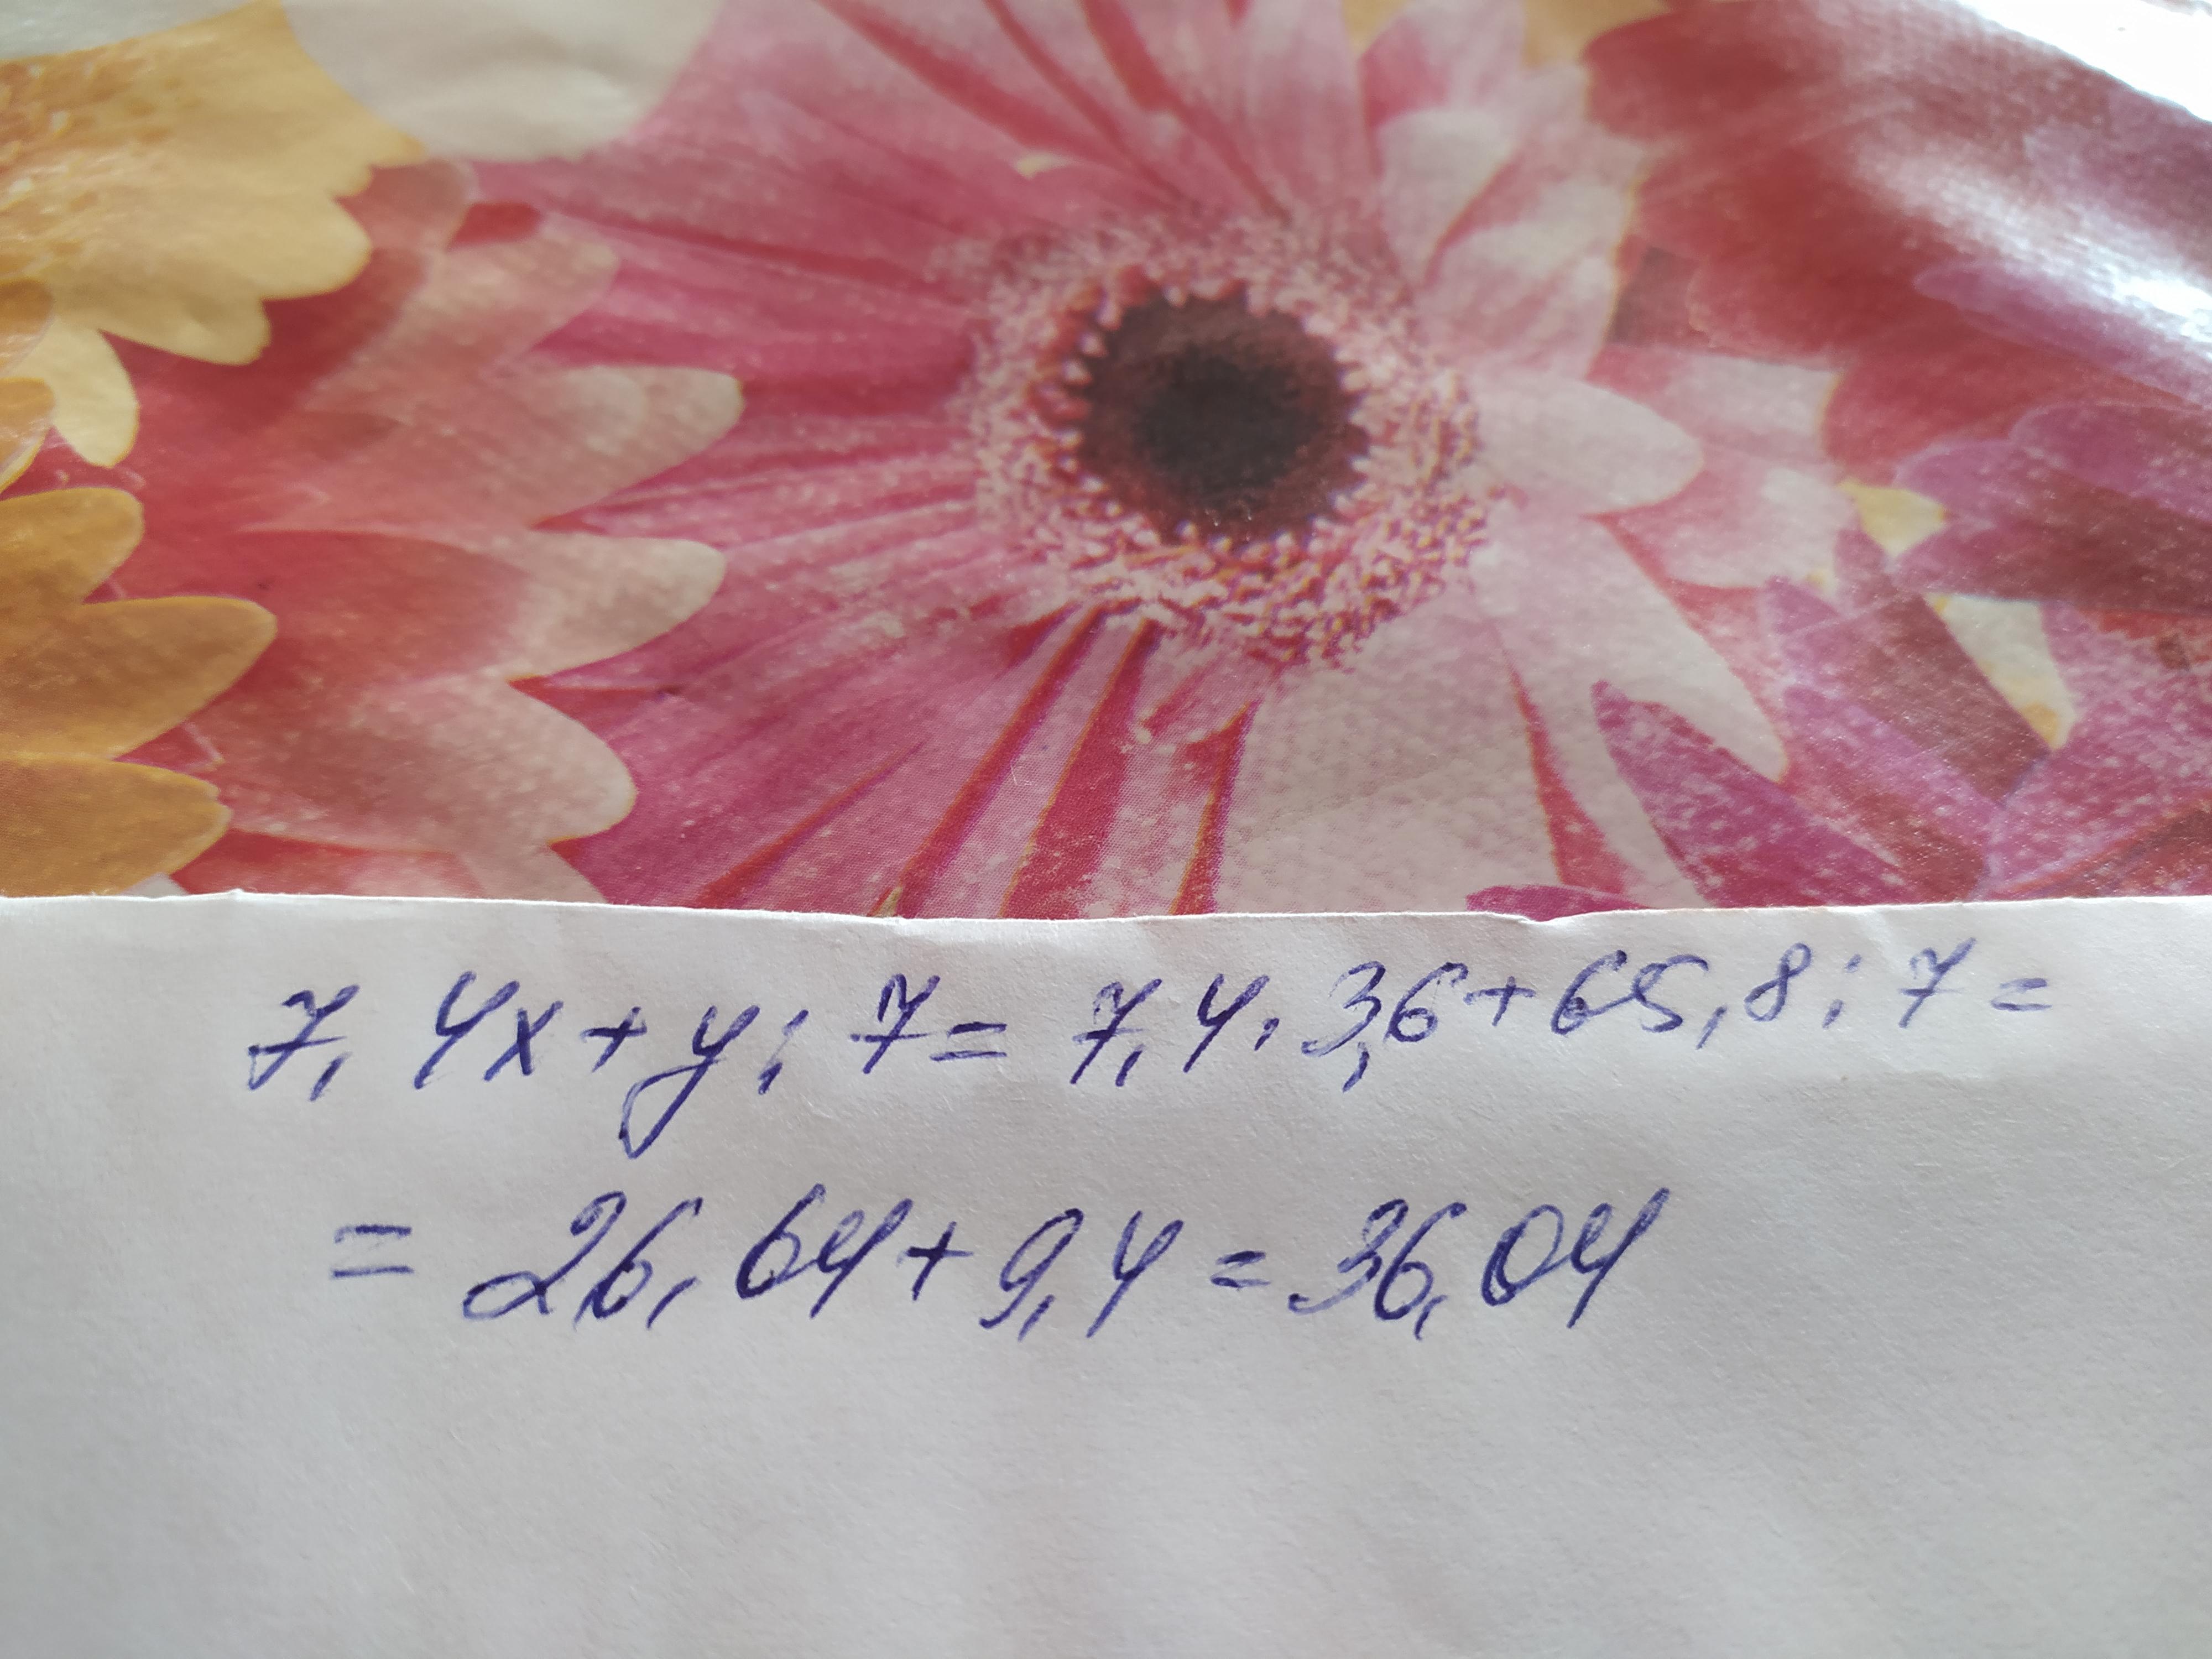 7,4x+y:7=7,4·3,6+65,8:7=
=26,64+9,4=36,04